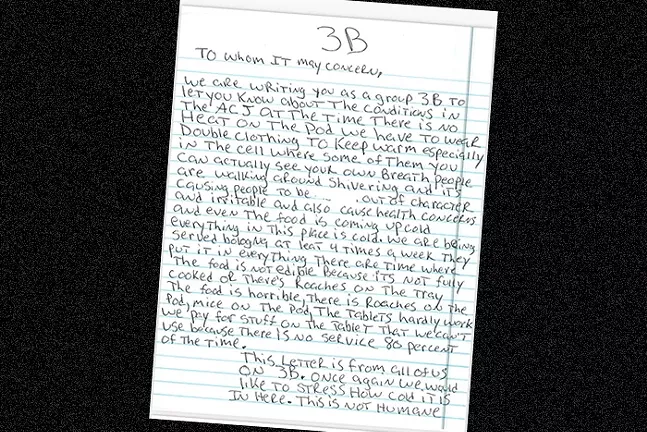 3B
To whom IT may concern,
we are writing you as a group 3B To
let you know about The conditions in
The ACJ AT The Time There is no
Heat on The Pod we have To wear
Double clothing To Keep warm especially
in The cell where some of Them you
can actually see your own Breath people
are walking around shivering and it's
causing people to be ... out of character
and irritable and also cause health concerns
and even The food is coming up cold
everything in This place is cold. We are being
served bologna at least 4 times a week They
put it in everything There are time where
The food is not edible Because its not fully
cooked or There's Roaches on The Tray
The food is horrible, There is Roaches on the
Pod, mice on The Pod, The Tablets hardly work
we pay for stuff on The Tablet That we can't
use because There is no service 80 percent
of the Time.
This Letter is from all of us
on 3B. Once again we would
like to stress How cold it is
In Here. This is not Humane